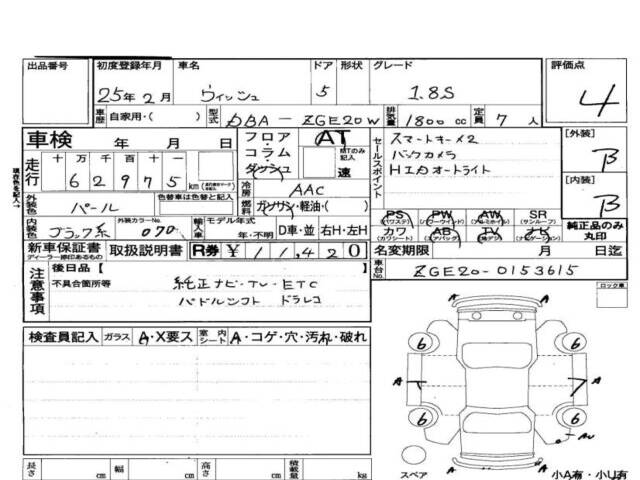 出品番号 初度登録年月 車名 ドア 形状 グレード 評価点
25年 2月 ウィッシュ 5 1.8S 4
車歴 自家用・( ) 型式 DBA - ZGE20W 排気量 1800 cc 定員 7 人
車検 年 月 フロア AT
走行 十 万 千 百 十 一 コラム MTのみ記入
6 2 9 7 5 km ダッシュ 速
セールスポイント スマートキー×2
バックカメラ
HIDオートライト
[外装] B
[内装] B
現在色を記入→
外装色 パール 色替車は色替と記入 冷房 AAC
燃料 ガソリン・軽油・( )
内装色 ブラック系 外装カラーNo. 070 輸入車 モデル年式 年・不明 D車・並 右H・左H
PS (パワステ) PW (パワーウインド) AW (アルミホイル) SR (サンルーフ)
カワ (カワシート) AB (エアバッグ) TV (地デジ) ナビ (ナビゲーション) 純正品のみ丸印
新車保証書 ディーラー捺印あるもの 取扱説明書 R券 ¥11,420 名変期限 月 日迄
車台No. ZGE20-0153615
注意事項 後日品【 】
不具合箇所等 純正ナビ・TV・ETC
パドルシフト ドラレコ
ロック車
検査員記入 ガラス A・X要ス 室内シート A・コゲ・穴・汚れ・破れ
6 6
A A
6 6
AU
スペア
A
長さ cm 幅 cm 高さ cm 積載量 kg 小A有・小U有